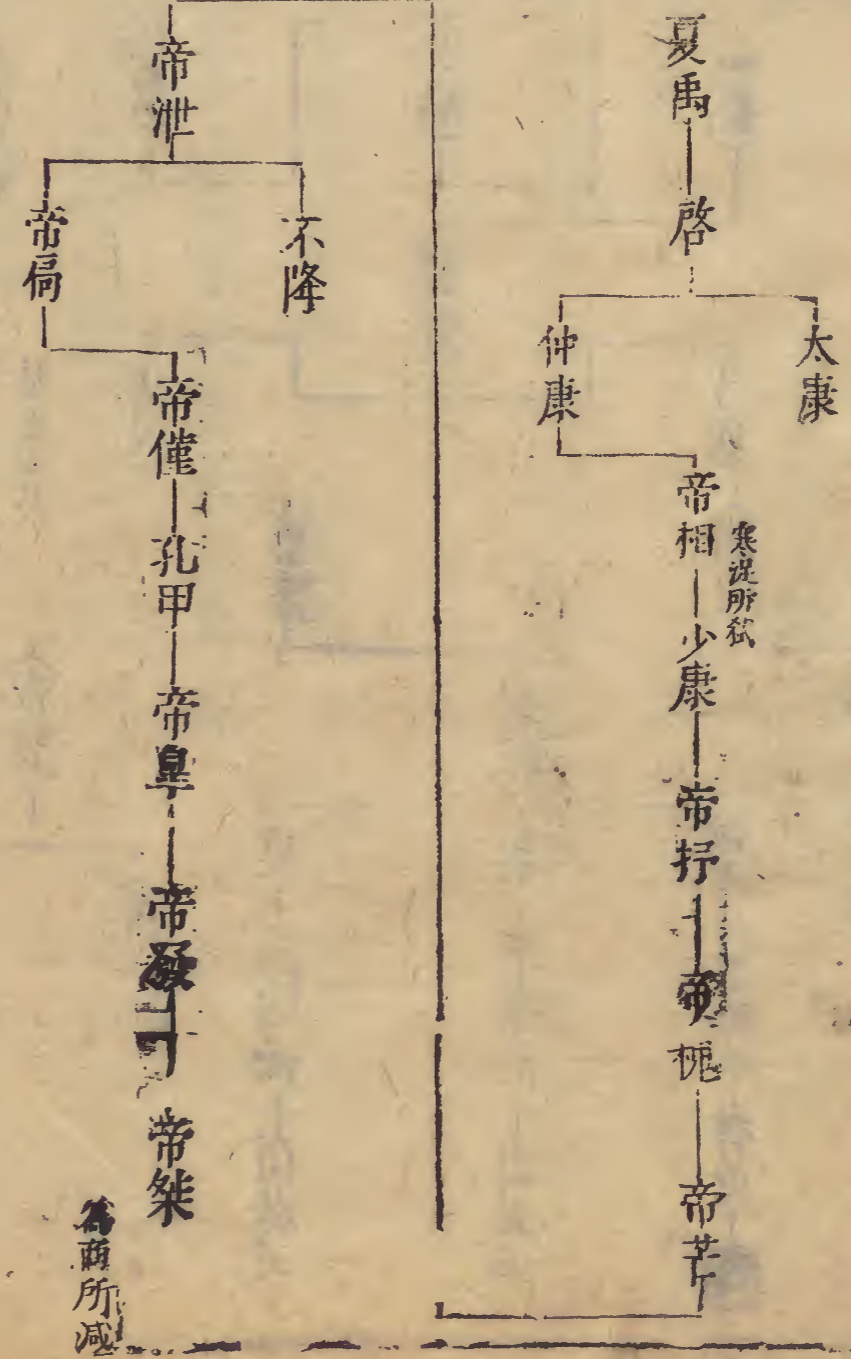 夏禹
啓
太康
仲康
帝相
寒浞所弑
少康
帝抒
帝槐
帝芒
帝泄
不降
帝扃
帝僅
孔甲
帝皐
帝發
帝桀
為商所滅